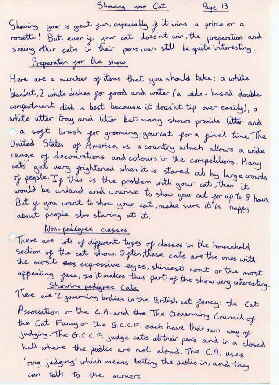 Showing your Cat Page 13
Showing your is great fun, especially if it wins a prize or a
rosette! But even if your cat doesn't win, the preparation and
seeing other cats in their pens can still be quite interesting.
Preparation for the show
Here are a number of items that you should take: a white
blanket, 2 white dishes for food and water (a side-by-side double
compartment dish is best because it doesn't tip over easily), a
white litter tray and litter but many shows provide litter and
a soft brush for grooming your cat for a final time. The
United States of America is a country which allows a wide
range of decorations and colours in the competitions. Many
cats get very frightened when it is stared at by large crowds
of people. If this is the problem with your cat, then it
would be unkind and unwise to show your cat for up to 8 hours.
But if you want to show your cat, make sure it is happy
about people staring at it.
Non-pedigree classes
There are lots of different types of classes in the household
section of the cat show. Often these cats are the ones with
the most expressive eyes, shiniest coat or the most
appealing face, so it makes this part of the show very interesting.
Showing pedigree Cats
There are 2 governing bodies in the British cat fancy: the Cat
Association or the C.A. and the The Governing Council of
the Cat Fancy or the G.C.C.F. each have their own way of
judging. The G.C.C.F. judge cats at their pens and in a closed
hall where the public are not allowed. The C.A. uses
'ring judging' which means letting the public in, and they
can talk to the owners